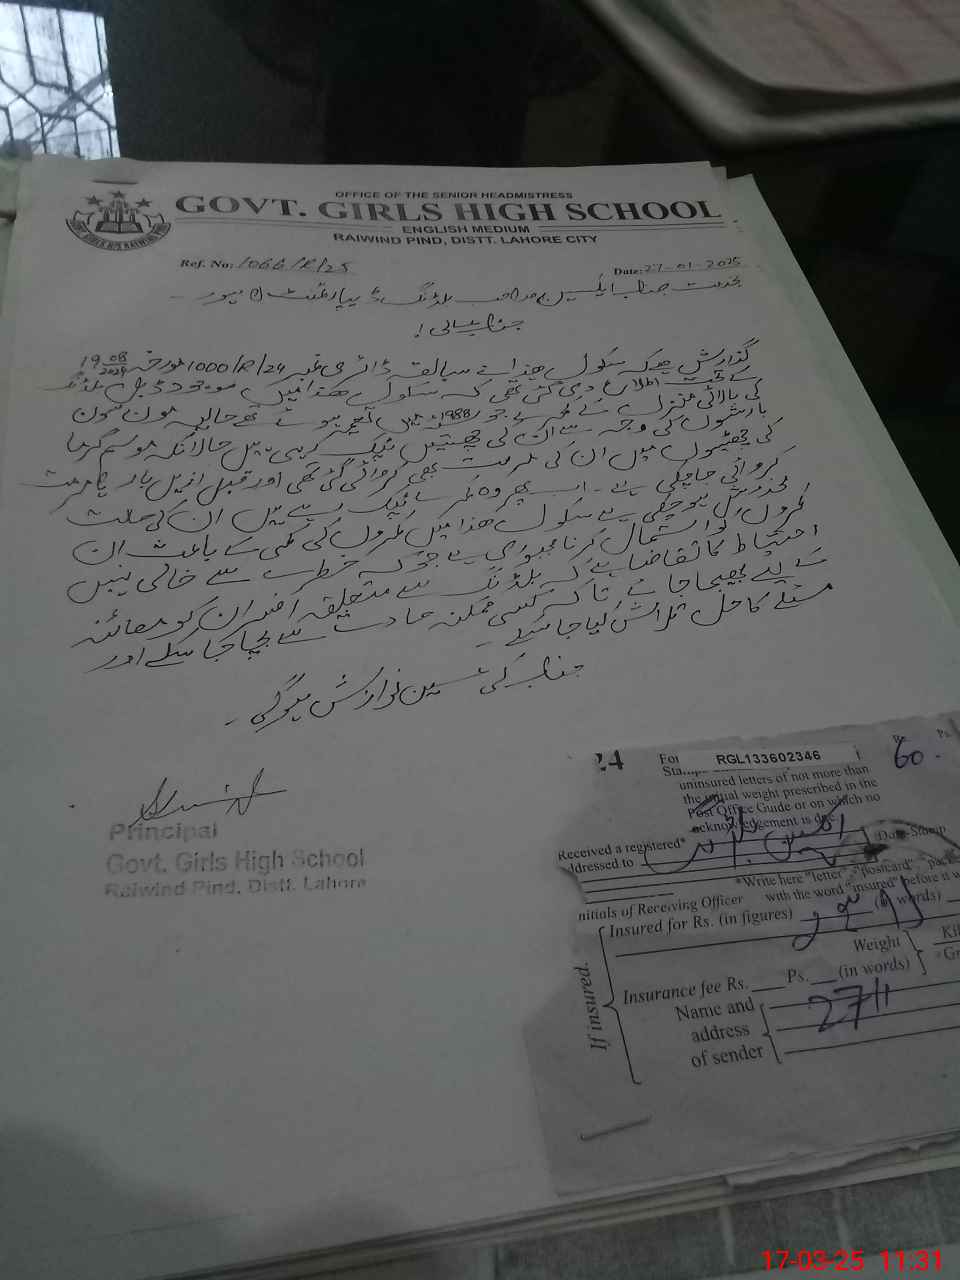 OFFICE OF THE SENIOR HEADMISTRESS
GOVT. GIRLS HIGH SCHOOL
ENGLISH MEDIUM
RAIWIND PIND, DISTT. LAHORE CITY
Ref. No: 1066/R/25
Date: 27-01-2025
بخدمت جناب ایکسین صاحب بلڈنگ ڈیپارٹمنٹ لاہور۔
جناب عالی!
گذارش ہے کہ سکول ھذا سے سابقہ ڈائری نمبر 1000/R/24 مورخہ 19/08/2024
کے تحت اطلاع دی گئی تھی کہ سکول ھذا میں موجود ڈبل بلڈنگ
کی بالائی منزل کے کمرے جو 1988 میں تعمیر ہوئے تھے حالیہ مون سون
بارشوں کی وجہ سے ان کی چھتیں ٹپک رہی ہیں حالانکہ موسم گرما
کی چھٹیوں میں ان کی مرمت بھی کروائی گئی تھی اور قبل ازیں بار ہا مرمت
کروائی جا چکی ہے۔ اب پھر وہ کمرے ٹپک رہے ہیں ان کی حالت
مخدوش ہو چکی ہے سکول ھذا میں کمروں کی کمی کے باعث ان
کمروں کو استعمال کرنا مجبوری ہے جو کہ خطرے سے خالی نہیں
احتیاط کا تقاضا ہے کہ بلڈنگ سے متعلقہ افسران کو معائنہ
کے لیے بھیجا جائے تاکہ کسی ممکن حادثہ سے بچا جا سکے اور
مسئلے کا حل تلاش کیا جا سکے۔
جناب کی عین نوازش ہوگی۔
Principal
Govt. Girls High School
Raiwind Pind, Distt. Lahore
24
For RGL133602346
Rs. Ps.
60
uninsured letters of not more than
the initial weight prescribed in the
Post Office Guide or on which no
acknowledgement is due.
Received a registered*
ddressed to
Date-Stamp
*Write here "letter", "postcard", "packet"
with the word "insured" before it
nitials of Receiving Officer
Insured for Rs. (in figures) (in words)
If insured.
Weight
Insurance fee Rs. Ps. (in words)
Name and
address
of sender
27/1
17-03-25 11:31